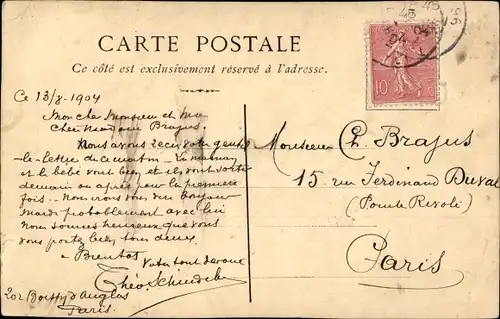 CARTE POSTALE
Ce côté est exclusivement réservé à l'adresse.
10
Ce 13/8 1904
Mon cher Monsieur et ma
Chère Madame Brajus.
Nous avons reçu votre gentille
lettre de La maman
et le bébé vont bien et ils vont sortir
demain ou après pour la première
fois. Nous irons voir
mardi probablement avec lui
Nous sommes heureux que vous
vous portez bien tous deux.
à Bientôt
Votre tout dévoué
Théo
202 Boissy d'Anglas
Paris.
Monsieur Ch. Brajus
15 rue Ferdinand Duval
(Pointe Rivoli)
Paris